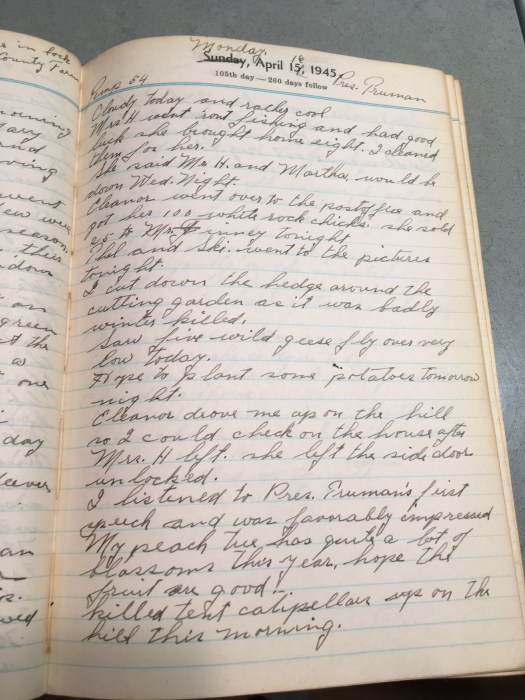 Monday. 16
Sunday, April 15, 1945
105th day—260 days follow
Pres. Truman
54
Cloudy today and rather cool
Mrs. H went out fishing and had good
luck she brought home eight. I cleaned
them for her.
She said Mr H. and Martha would be
down Wed. Night.
Eleanor went over to the postoffice and
got her 100 white rock chicks. she sold
to Mr. tonight
and Ski. went to the pictures
tonight.
I cut down the hedge around the
cutting garden as it was badly
winter killed.
Saw five wild geese fly over very
low today.
Hope to plant some potatoes tomorrow
night.
Eleanor drove me up on the hill
so I could check on the house after
Mrs. H left. she left the side door
unlocked.
I listened to Pres. Truman's first
speech and was favorably impressed
My peach tree has quite a bot of
blossoms this year, hope the
fruit are good!
killed tent catipellars up on the
hill this morning.
s in back
County Farm
green
the
one
day
an